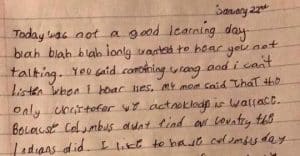 January 22nd
Today was not a good learning day
blah blah blah I only wanted to hear you not
talking. You said something wrong and i can't
listen when I hear lies. My mom said That the
only christofer we acknoklogd is wallace.
Because Columbus didnt find our country the
Indians did. I like to have columbus day